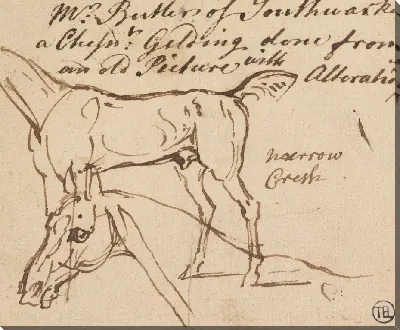 Mr. Butler of Southwark
a Chesnt. Gelding done from
an old Picture with Alteratio
narrow
Cresh
TB